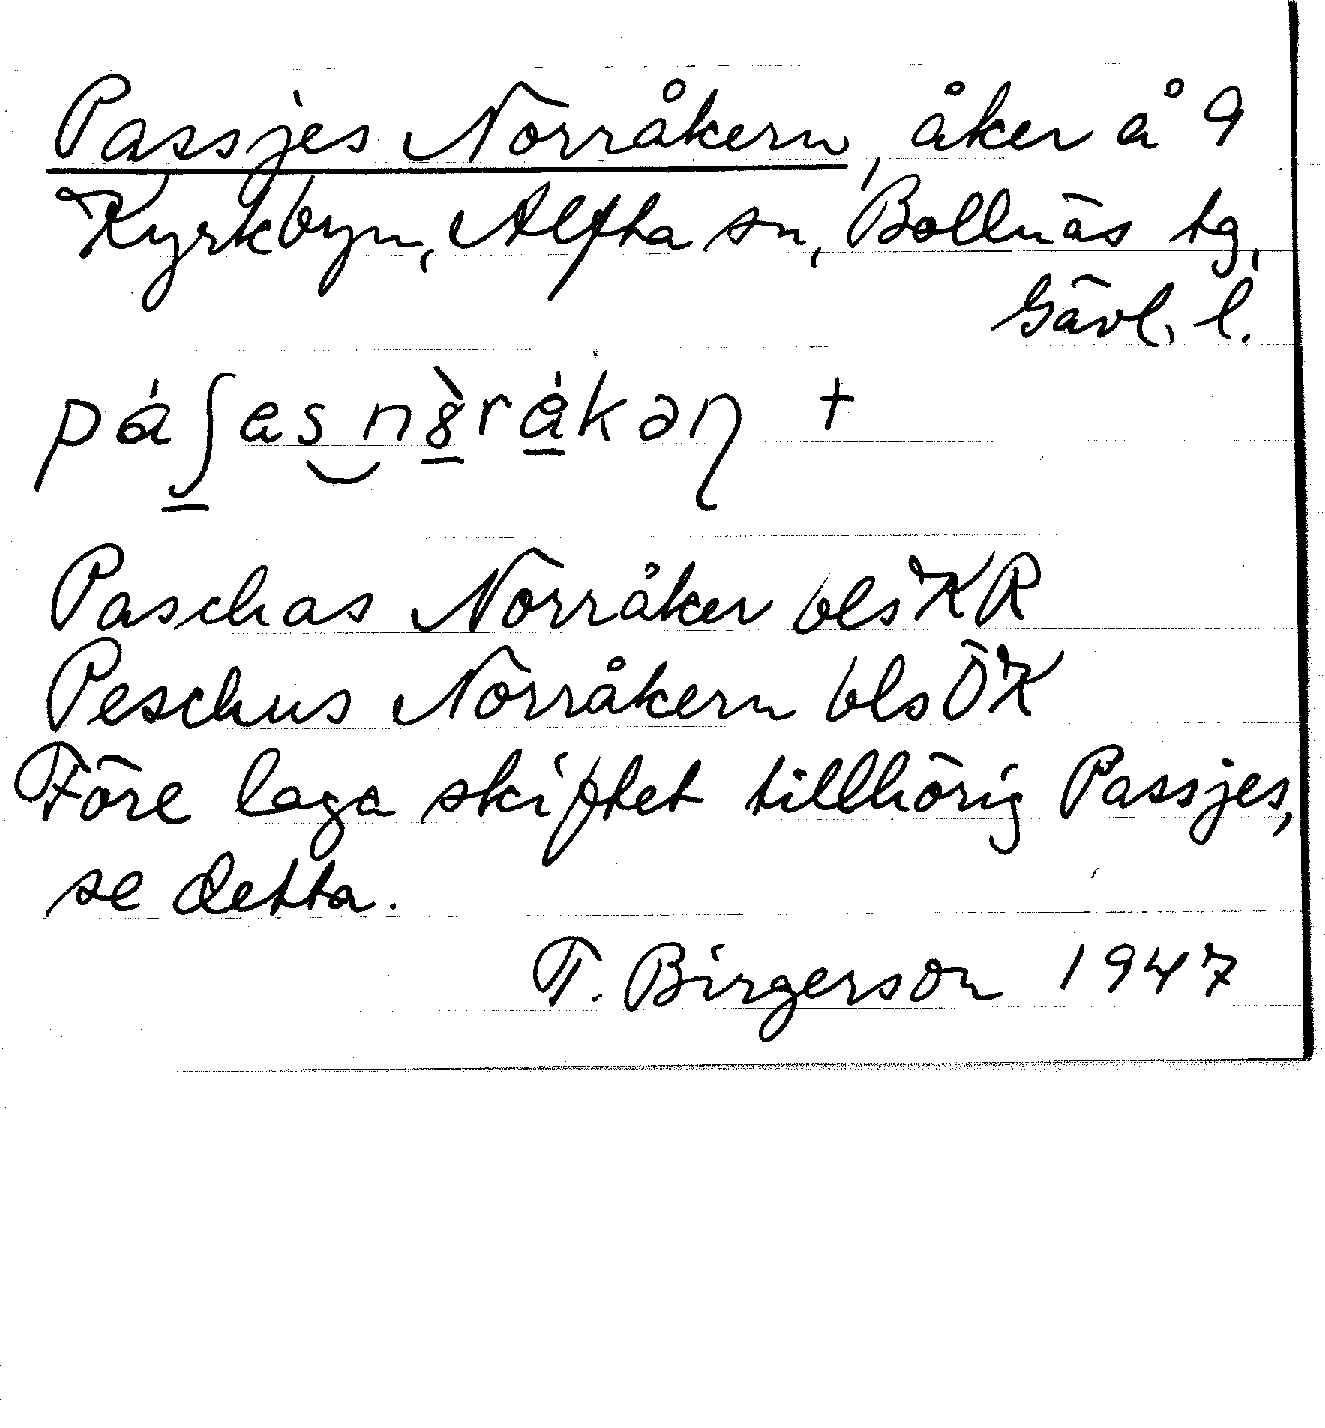 Passjes Norråkern, åker å 9
Kyrkbyn, Alfta sn, Bollnäs tg,
Gävl. l.
páʃes n8̀råkəɳ +
Paschas Norråker bls KR
Peschus Norråkern bls ÖK
Före laga skiftet tillhörig Passjes,
se detta.
T. Birgerson 1947